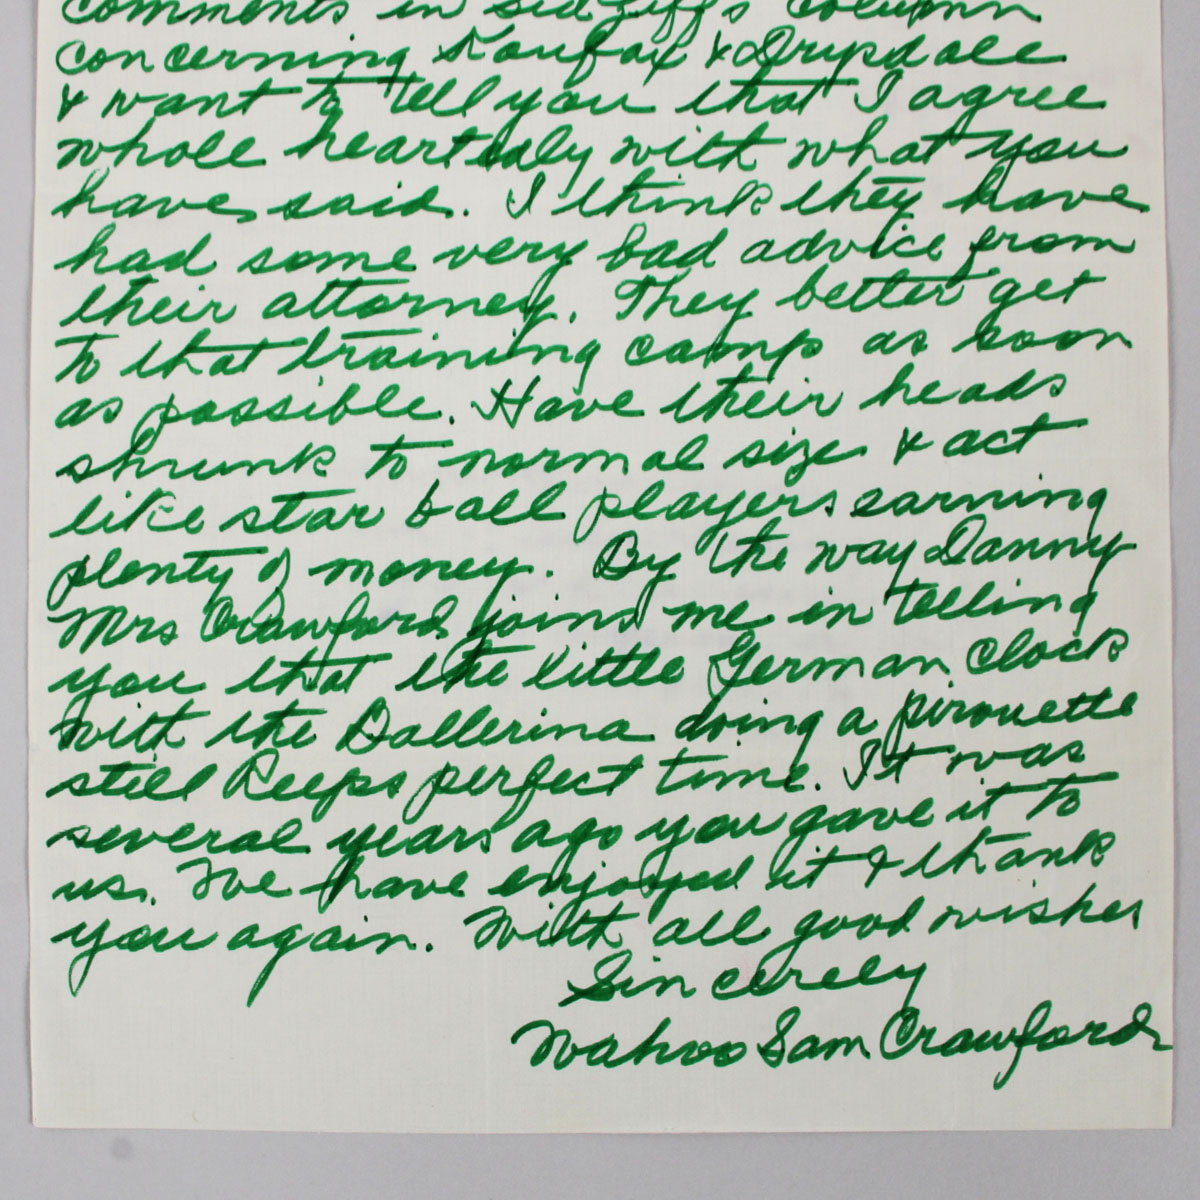 comments in Sid Ziff's column
concerning Koufax & Drysdale
& want to tell you that I agree
whole heartedly with what you
have said. I think they have
had some very bad advice from
their attorney. They better get
to that training camp as soon
as possible. Have their heads
shrunk to normal size & act
like star ball players earning
plenty of money. By the way Danny
Mrs Crawford joins me in telling
you that the little German clock
with the Ballerina doing a pirouette
still keeps perfect time. It was
several years ago you gave it to
us. We have enjoyed it & thank
you again. With all good wishes
Sincerely
Wahoo Sam Crawford